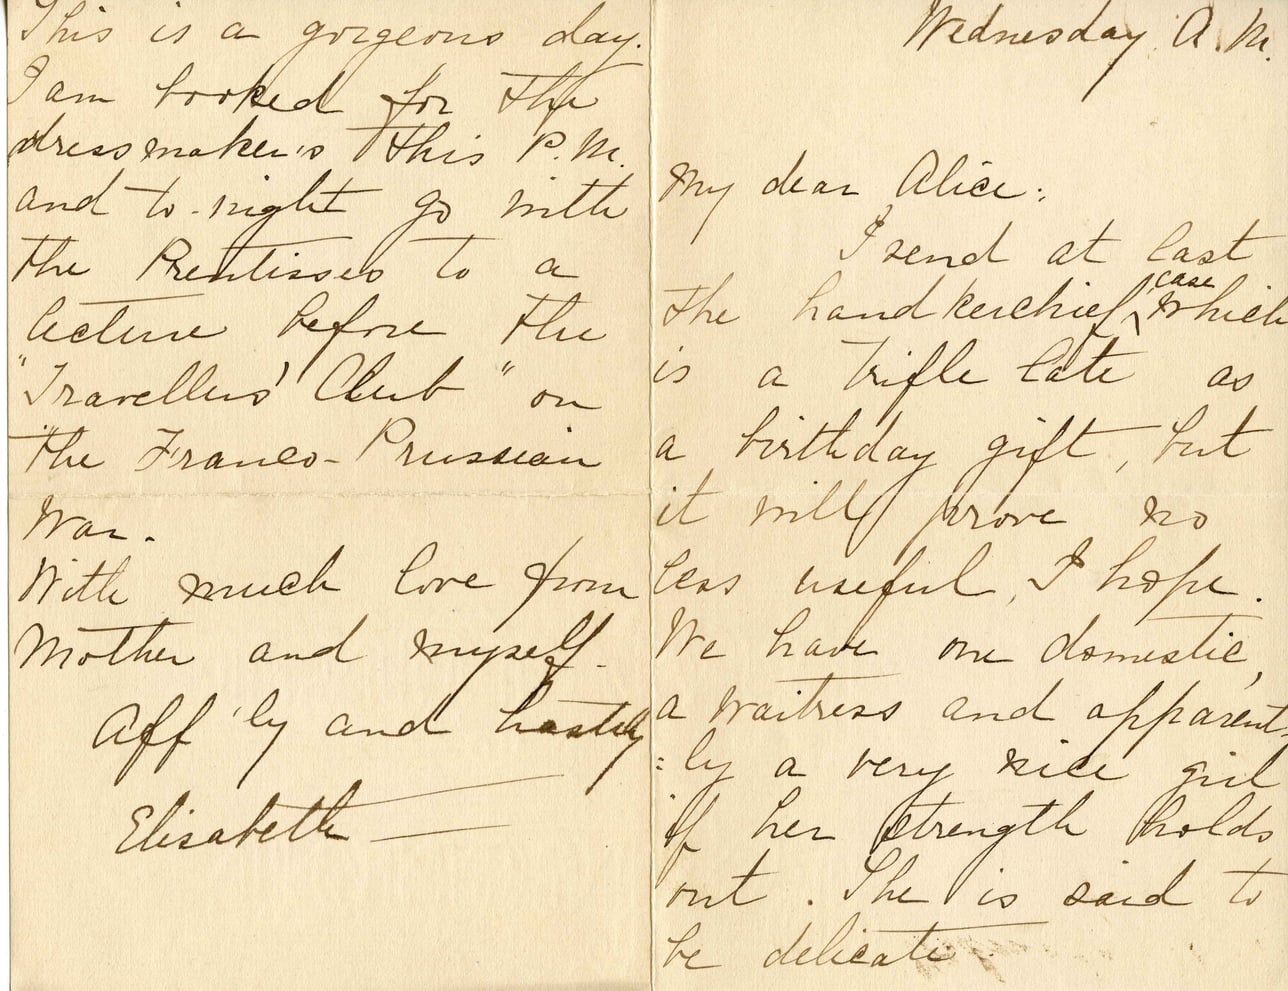 Wednesday A.M.
My dear Alice:
I send at last
the handkerchief ^case which
is a trifle late as
a birthday gift, but
it will prove no
less useful, I hope.
We have one domestic,
a waitress and apparent-
=ly a very nice girl
if her strength holds
out. She is said to
be delicate.
This is a gorgeous day.
I am booked for the
dressmaker's this P.M.
and to-night go with
the Prentisses to a
lecture before the
"Travellers' Club" on
"the Franco-Prussian
War.
With much love from
Mother and myself.
Aff'ly and hastily
Elisabeth